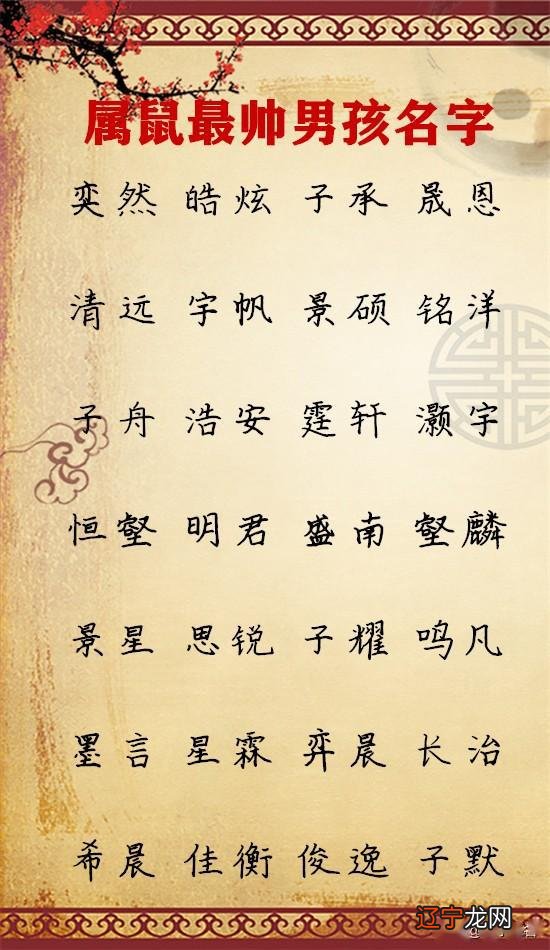 属鼠最帅男孩名字
奕然 皓炫 子承 晟恩
清远 宇帆 景硕 铭洋
子舟 浩安 霆轩 灏宇
恒壑 明君 盛南 壑麟
景星 思锐 子耀 鸣凡
墨言 星霖 弈晨 长治
希晨 佳衡 俊逸 子默
辽宁龙网